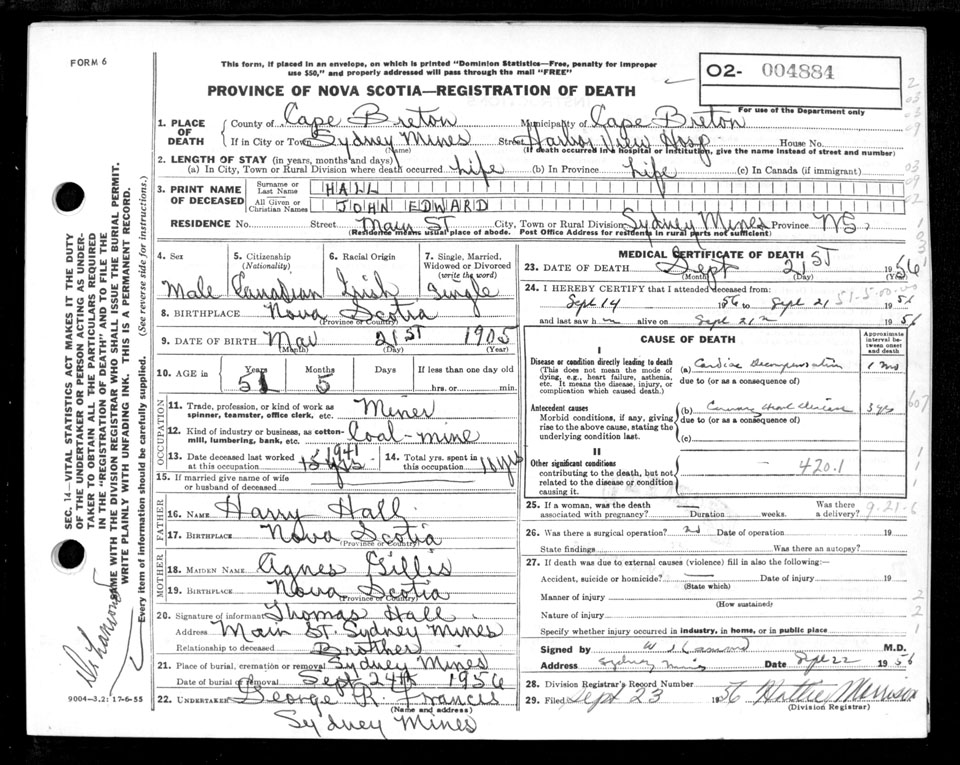 FORM 6
This form, if placed in an envelope, on which is printed "Dominion Statistics—Free, penalty for improper
use $50," and properly addressed will pass through the mail "FREE"
O2- 004884
For use of the Department only
PROVINCE OF NOVA SCOTIA—REGISTRATION OF DEATH
1. PLACE OF DEATH { County of Cape Breton Municipality of Cape Breton
If in City or Town Sydney Mines Street Harbor View Hosp. House No.
(Name) (If death occurred in a hospital or institution, give the name instead of street and number)
2. LENGTH OF STAY (in years, months and days)
(a) In City, Town or Rural Division where death occurred Life (b) In Province Life (c) In Canada (if immigrant)
3. PRINT NAME OF DECEASED { Surname or Last Name HALL
All Given or Christian Names JOHN EDWARD
RESIDENCE No. Street Main St City, Town or Rural Division Sydney Mines NS
(Residence means usual place of abode. Post Office Address for residents in rural parts not sufficient)
4. Sex 5. Citizenship (Nationality) 6. Racial Origin 7. Single, Married, Widowed or Divorced (write the word)
Male Canadian Irish Single
8. BIRTHPLACE Nova Scotia
(Province or Country)
9. DATE OF BIRTH Mar 21st 1905
(Month) (Day) (Year)
10. AGE in Years Months Days If less than one day old
51 5 hrs. or min.
OCCUPATION
11. Trade, profession, or kind of work as spinner, teamster, office clerk, etc. Miner
12. Kind of industry or business, as cotton-mill, lumbering, bank, etc. Coal-mine
13. Date deceased last worked at this occupation 1941
14. Total yrs. spent in this occupation
15. If married give name of wife or husband of deceased
FATHER
16. NAME Harry Hall
17. BIRTHPLACE Nova Scotia
(Province or Country)
MOTHER
18. MAIDEN NAME Agnes Gillis
19. BIRTHPLACE Nova Scotia
(Province or Country)
20. Signature of informant Thomas Hall
Address Main St. Sydney Mines
Relationship to deceased Brother
21. Place of burial, cremation or removal Sydney Mines
Date of burial or removal Sept 24th 1956
22. UNDERTAKER George R. Francis
(Name and address)
Sydney Mines
MEDICAL CERTIFICATE OF DEATH
23. DATE OF DEATH Sept 21st 1956
(Month) (Day)
24. I HEREBY CERTIFY that I attended deceased from:
Sept 14 1956 to Sept 21 1956
51-5-00-00
and last saw h alive on Sept 21 1956
CAUSE OF DEATH
Approximate interval between onset and death
I
Disease or condition directly leading to death
(This does not mean the mode of dying, e.g., heart failure, asthenia, etc. It means the disease, injury, or complication which caused death.)
(a) Cardiac Decompensation
due to (or as a consequence of)
Antecedent causes
Morbid conditions, if any, giving rise to the above cause, stating the underlying condition last.
(b) Coronary
3 yrs
due to (or as a consequence of)
(c)
II
Other significant conditions
contributing to the death, but not related to the disease or condition causing it.
420.1
25. If a woman, was the death associated with pregnancy? Duration weeks. Was there a delivery?
9-21-6
26. Was there a surgical operation? no Date of operation 19
State findings Was there an autopsy?
27. If death was due to external causes (violence) fill in also the following:—
Accident, suicide or homicide? Date of injury 19
(State which)
Manner of injury
(How sustained)
Nature of injury
Specify whether injury occurred in industry, in home, or in public place
Signed by M.D.
Address Sydney Mines Date Sept 22 1956
28. Division Registrar's Record Number
29. Filed Sept 23 1956 Hattie Morrison
(Division Registrar)
SEC. 14—VITAL STATISTICS ACT MAKES IT THE DUTY
OF THE UNDERTAKER OR PERSON ACTING AS UNDER-
TAKER TO OBTAIN ALL THE PARTICULARS REQUIRED
IN THE "REGISTRATION OF DEATH" AND TO FILE THE
SAME WITH THE DIVISION REGISTRAR WHO SHALL ISSUE THE BURIAL PERMIT.
WRITE PLAINLY WITH UNFADING INK. THIS IS A PERMANENT RECORD.
Every item of information should be carefully supplied. (See reverse side for instructions.)
9004-3.2: 17-6-55